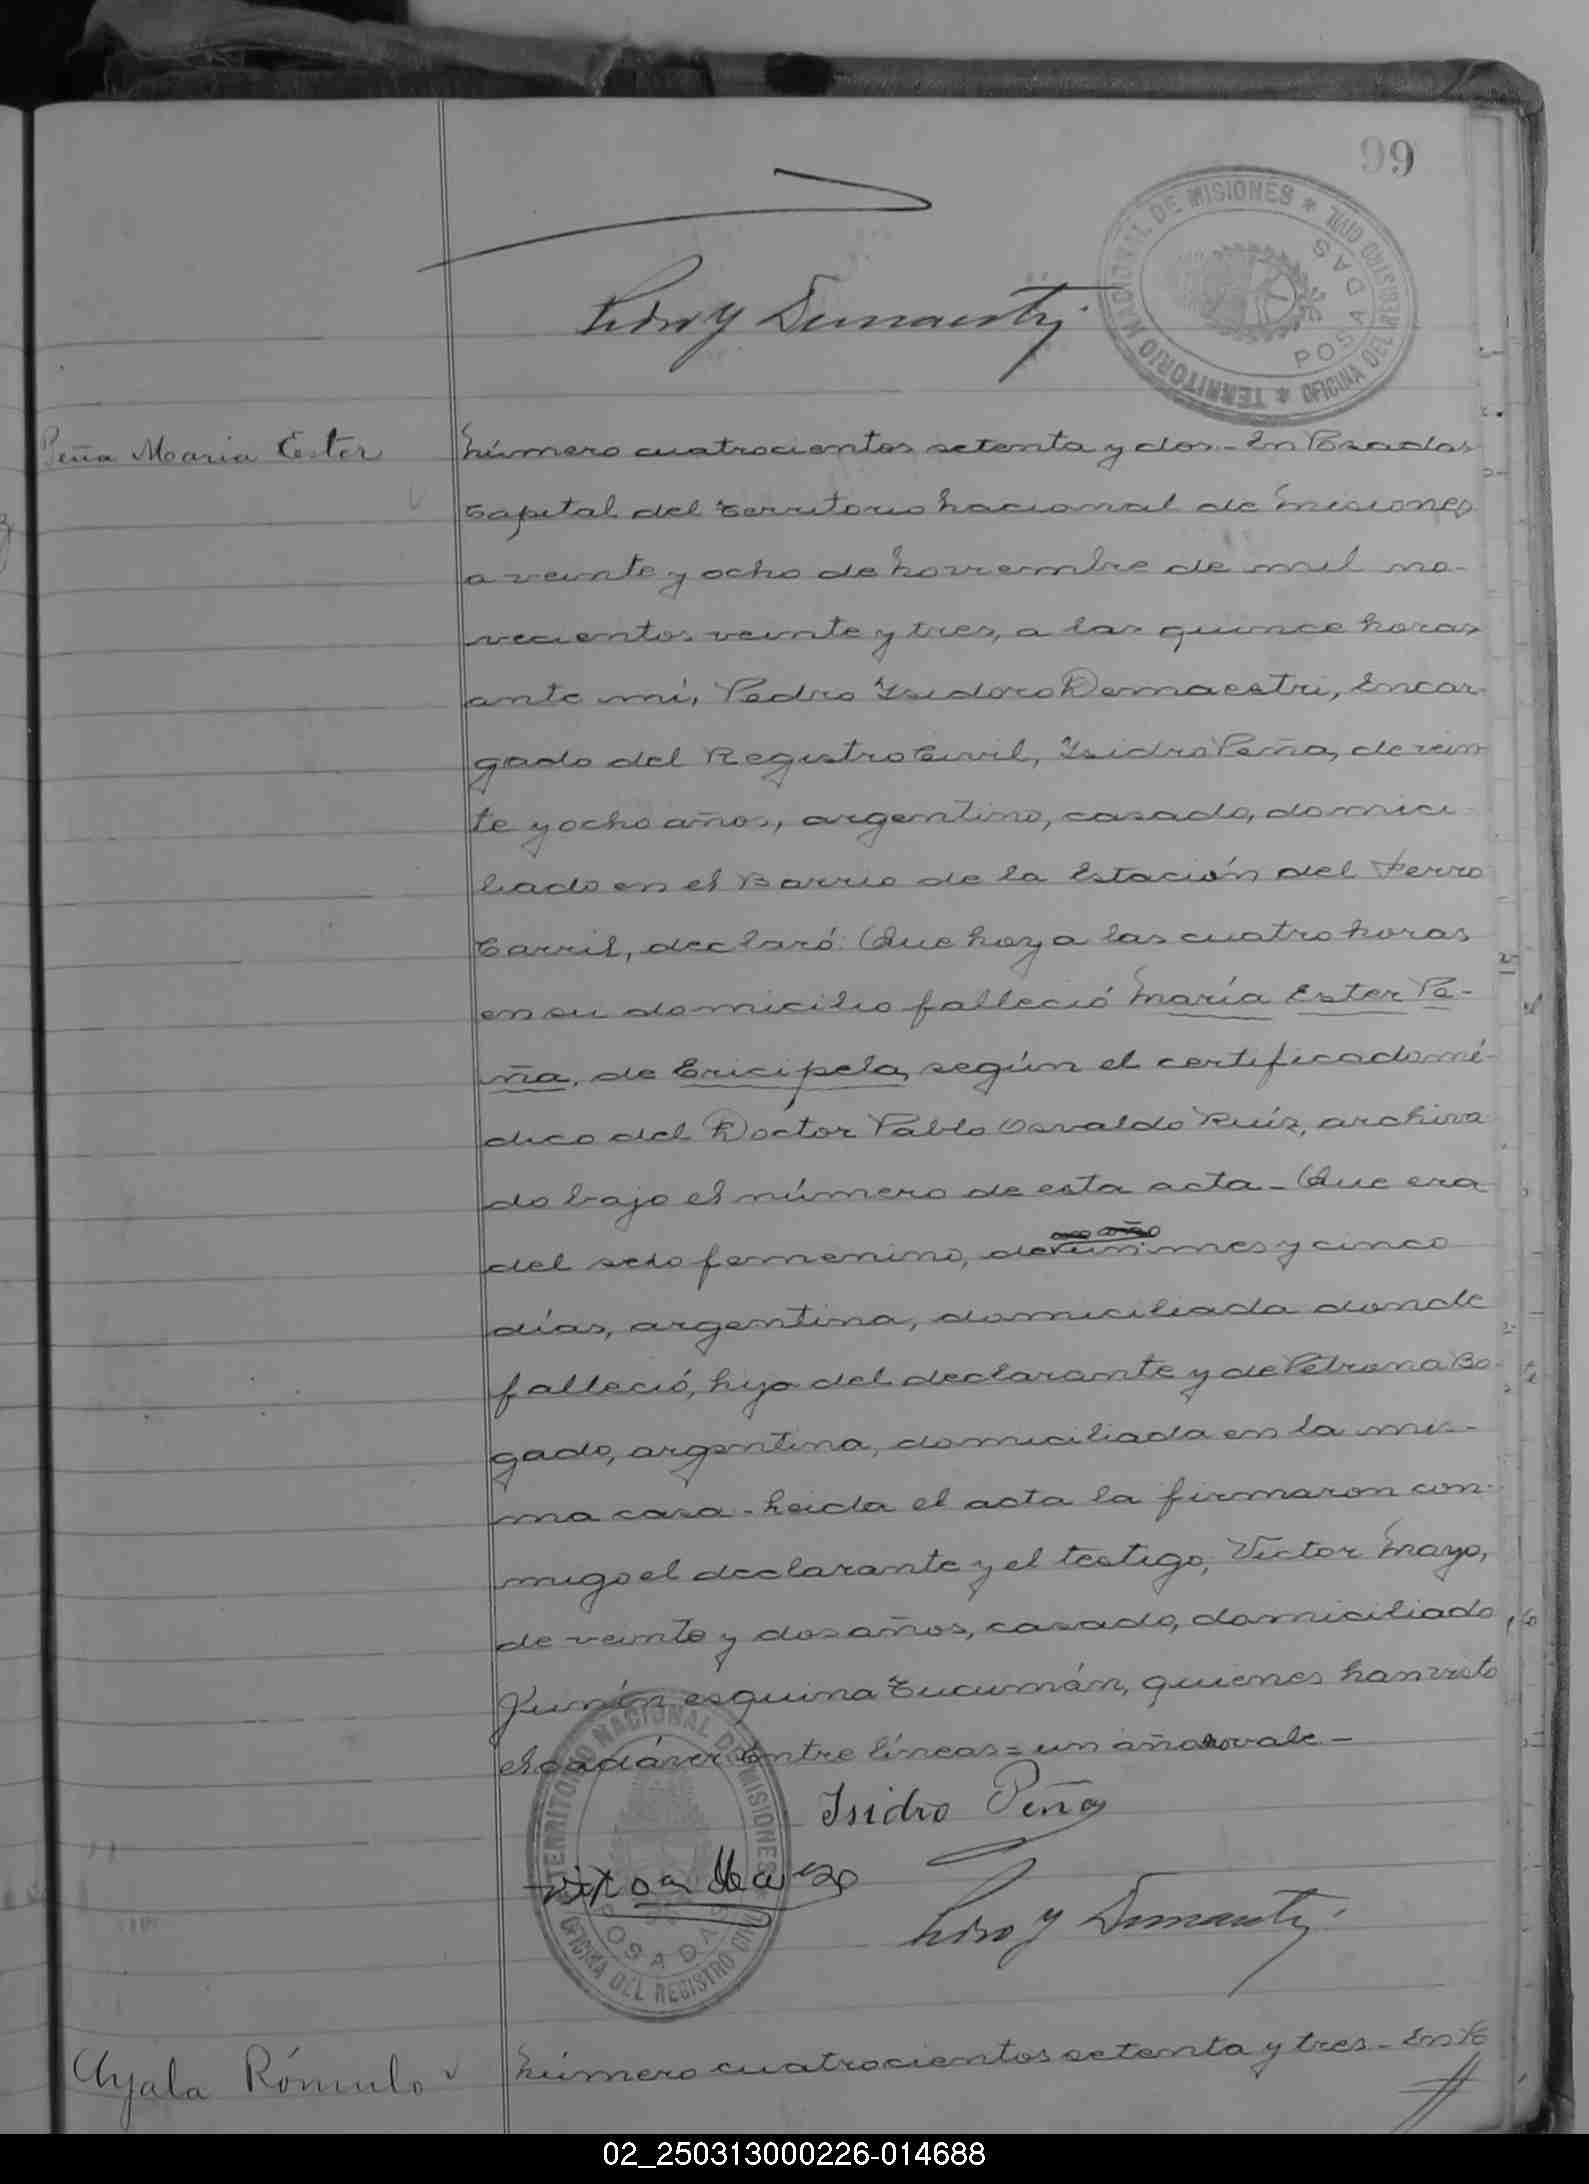 99
TERRITORIO NACIONAL DE MISIONES * OFICINA DEL REGISTRO CIVIL *
POSADAS
Pedro Y Demaestri
Peña Maria Ester
Número cuatrocientos setenta y dos.- En Posadas
Capital del Territorio Nacional de Misiones
a veinte y ocho de Noviembre de mil no-
vecientos veinte y tres, a las quince horas
ante mí, Pedro Ysidoro Demaestri, Encar-
gado del Registro Civil, Ysidro Peña, de vein-
te y ocho años, argentino, casado, domici-
liado en el Barrio de la Estación del Ferro
Carril, declaró: Que hoy a las cuatro horas
en su domicilio falleció María Ester Pe-
ña, de Ericipela, según el certificado mé-
dico del Doctor Pablo Osvaldo Ruíz, archiva
do bajo el número de esta acta - Que era
del sexo femenino, de un mes y cinco
días, argentina, domiciliada donde
falleció, hija del declarante y de Petrona Bo-
gado, argentina, domiciliada en la mis-
ma casa - Leida el acta la firmaron con-
migo el declarante y el testigo, Victor Mayo,
de veinte y dos años, casado, domiciliado
Junín esquina Tucumán, quienes han visto
el cadáver Entre líneas = un año no vale -
Isidro Peña
Pedro Y Demaestri
TERRITORIO NACIONAL DE MISIONES
POSADAS
OFICINA DEL REGISTRO CIVIL
Ayala Rómulo
Número cuatrocientos setenta y tres - En Po
02_250313000226-014688